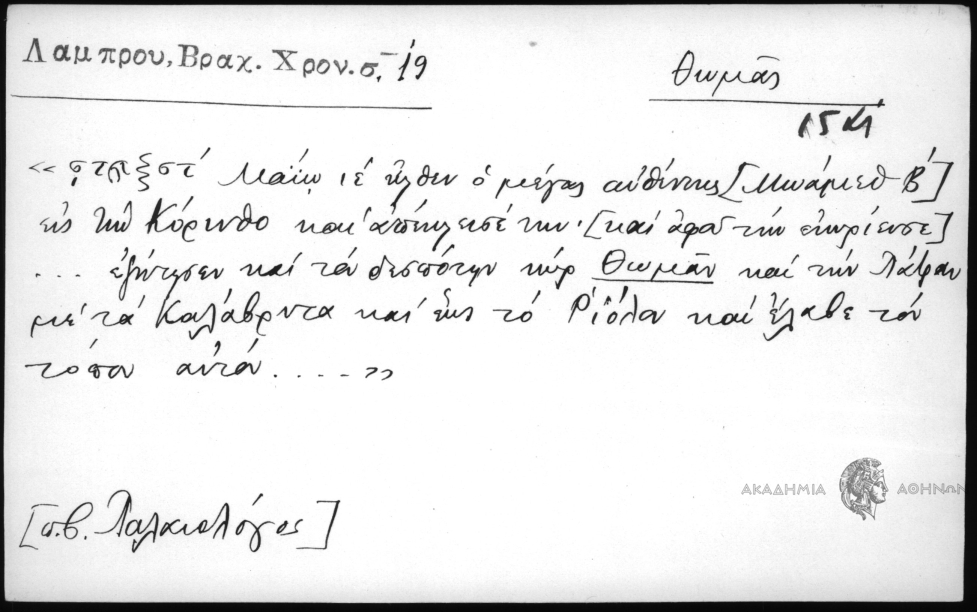 Λαμπρου, Βραχ. Χρον. σ. 19
Θωμᾶς
« ͵ϛϡξϛ΄ Μαΐῳ ιέ ἦλθεν ὁ μέγας αὐθέντης [Μωάμεθ Β΄]
εἰς τὴν Κόρινθο καὶ ἀπέκλεισέ την· [καὶ ἀφοῦ τὴν ἐκυρίευσε]
... ἐζήτησεν καὶ τὸν δεσπότην κύρ Θωμᾶν καὶ τὴν Πάτραν
μὲ τὰ Καλάβρυτα καὶ ἕως τὸ Ριόλον καὶ ἔλαβε τὸν
τόπον αὐτόν ..... »
[π.β. Παλαιολόγος]
ΑΚΑΔΗΜΙΑ ΑΘΗΝΩΝ